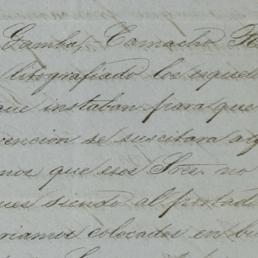 Gamba, Camacho R
litografiado los esquele
que instaban para que
vencion se suscitara a
mos que esos Sres. no
ues siendo al portado
riamos colocados en bu